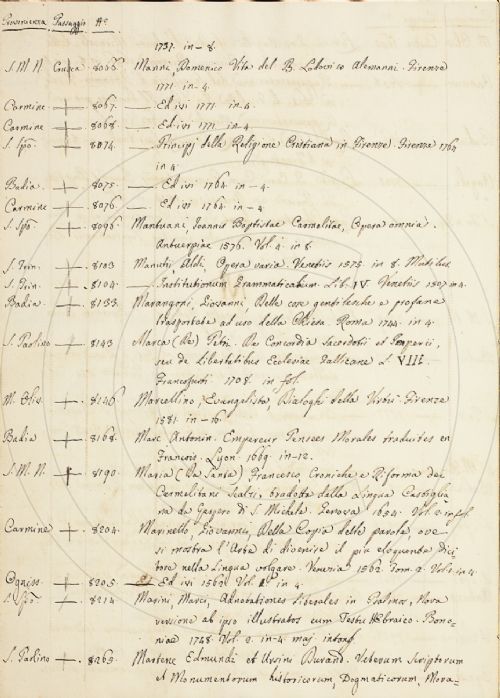 Provenienza Passaggio No
1737. in-8.
S. M. N. Crusca 8066. Manni, Domenico Vita del B. Lodovico Alemanni. Firenze
1771. in-4.
Carmine + 8067. —— Ed. ivi 1771. in 4.
Carmine + 8068. —— Ed. ivi 1771. in 4.
S. Spo. + 8074. —— Principj della Religione Cristiana in Firenze. Firenze 1764
in 4.
Badia + 8075. —— Ed. ivi 1764. in-4.
Carmine + 8076. —— Ed. ivi 1764. in-4.
S. Spo. + 8096. Mantuani, Joannis Baptistae Carmelitae, Opera omnia.
Antuerpiae 1576. Vol. 4. in 8.
S. Trin. + 8103. Manutii, Aldi, Opera varia. Venetiis 1575. in 8.
S. Trin. + 8104. —— Institutionum Grammaticarum Lib. IV. Venetiis 1507. in 4.
Badia + 8133. Marangoni, Giovanni, Delle cose gentilesche e profane
trasportate ad uso della Chiesa. Roma 1744. in 4.
S. Paolino + 8143. Marca (De) Petri. De Concordia Sacerdotii et Imperii,
seu de Libertatibus Ecclesiae Gallicanae L. VIII.
Francofurti 1708. in fol.
M. Oliv. + 8146. Marcellino, Evangelista, Dialoghi della Virtù. Firenze
1581. in-16.
Badia + 8168. Marc Antonin. Empereur Pensees Morales traduites en
François. Lyon. 1669. in-12.
S. M. N. + 8190. Maria (Da Santa) Francesco, Croniche e Riforma dei
Carmelitani Scalzi, tradotta dalla Lingua Castiglia
na da Gaspero di S. Michele. Genova 1654. Vol. 2. in fol.
Carmine + 8204. Marinello, Giovanni, Della Copia delle parole, ove
si mostra l'Arte di divenire il più eloquente Dici
tore nella Lingua volgare. Venezia 1562. Tom. 2. Vol. 1. in 4.
Ogniss. + 8205. Ed. ivi 1562. Vol. in 4.
S. Spo. + 8214. Masini, Marci, Adnotationes Liberales in Psalmos, Nova
versione ab ipso illustratos cum Textu Hebraico. Bono-
niae 1748. Vol. 2. in-4. maj.
S. Paolino + 8265. Martene Edmundi et Ursini Durand. Veterum Scriptorum
et Monumentorum historicorum, Dogmaticorum, Mora-